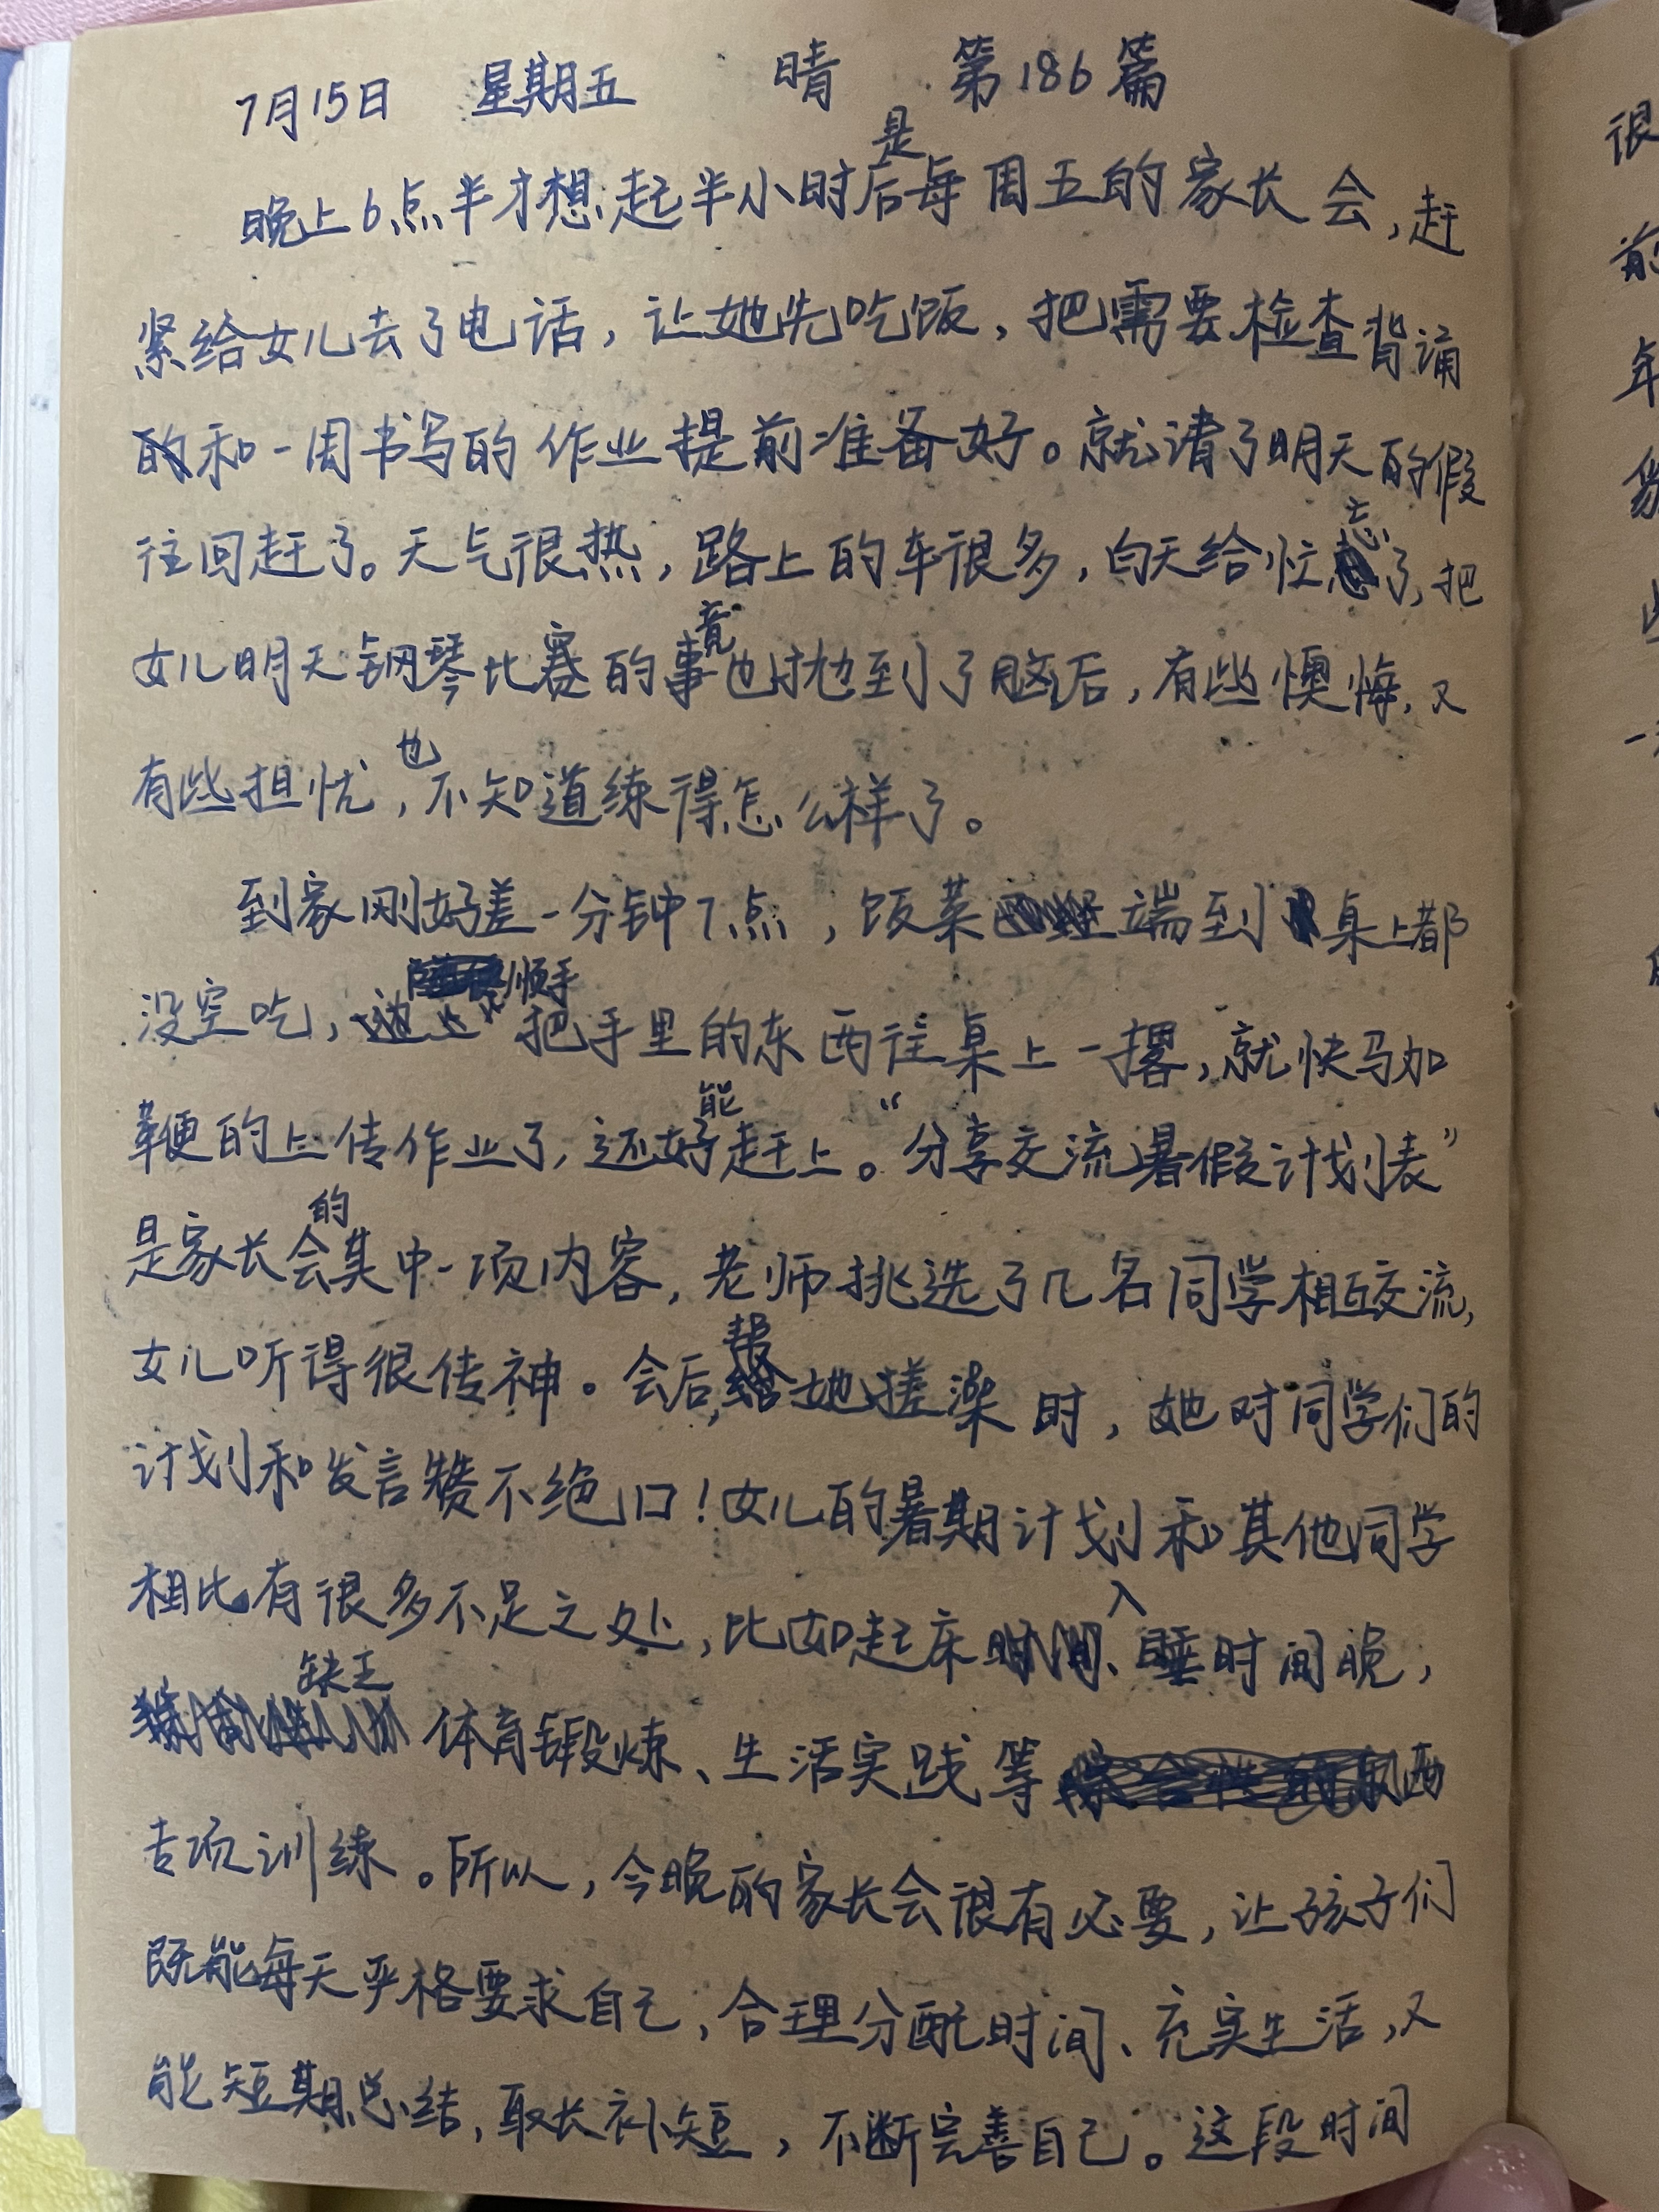 7月15日 星期五 晴 第186篇
晚上6点半才想起半小时后是每周五的家长会,赶
紧给女儿去了电话,让她先吃饭,把需要检查背诵
的和一周书写的作业提前准备好。就请了明天的假
往回赶了。天气很热,路上的车很多,白天给忙忘了,把
女儿明天钢琴比赛的事竟也抛到了脑后,有些懊悔,又
有些担忧,也不知道练得怎么样了。
到家刚好差一分钟7点,饭菜端到桌上都
没空吃,顺手把手里的东西往桌上一撂,就快马加
鞭的上传作业了,还好能赶上。“分享交流暑假计划表”
是家长会的其中一项内容,老师挑选了几名同学相互交流,
女儿听得很传神。会后,帮她搓澡时,她对同学们的
计划和发言赞不绝口!女儿的暑期计划和其他同学
相比有很多不足之处,比如起床、入睡时间晚,
缺乏体育锻炼、生活实践等
专项训练。所以,今晚的家长会很有必要,让孩子们
既能每天严格要求自己,合理分配时间、充实生活,又
能短期总结,取长补短,不断完善自己。这段时间
很
前
年
一